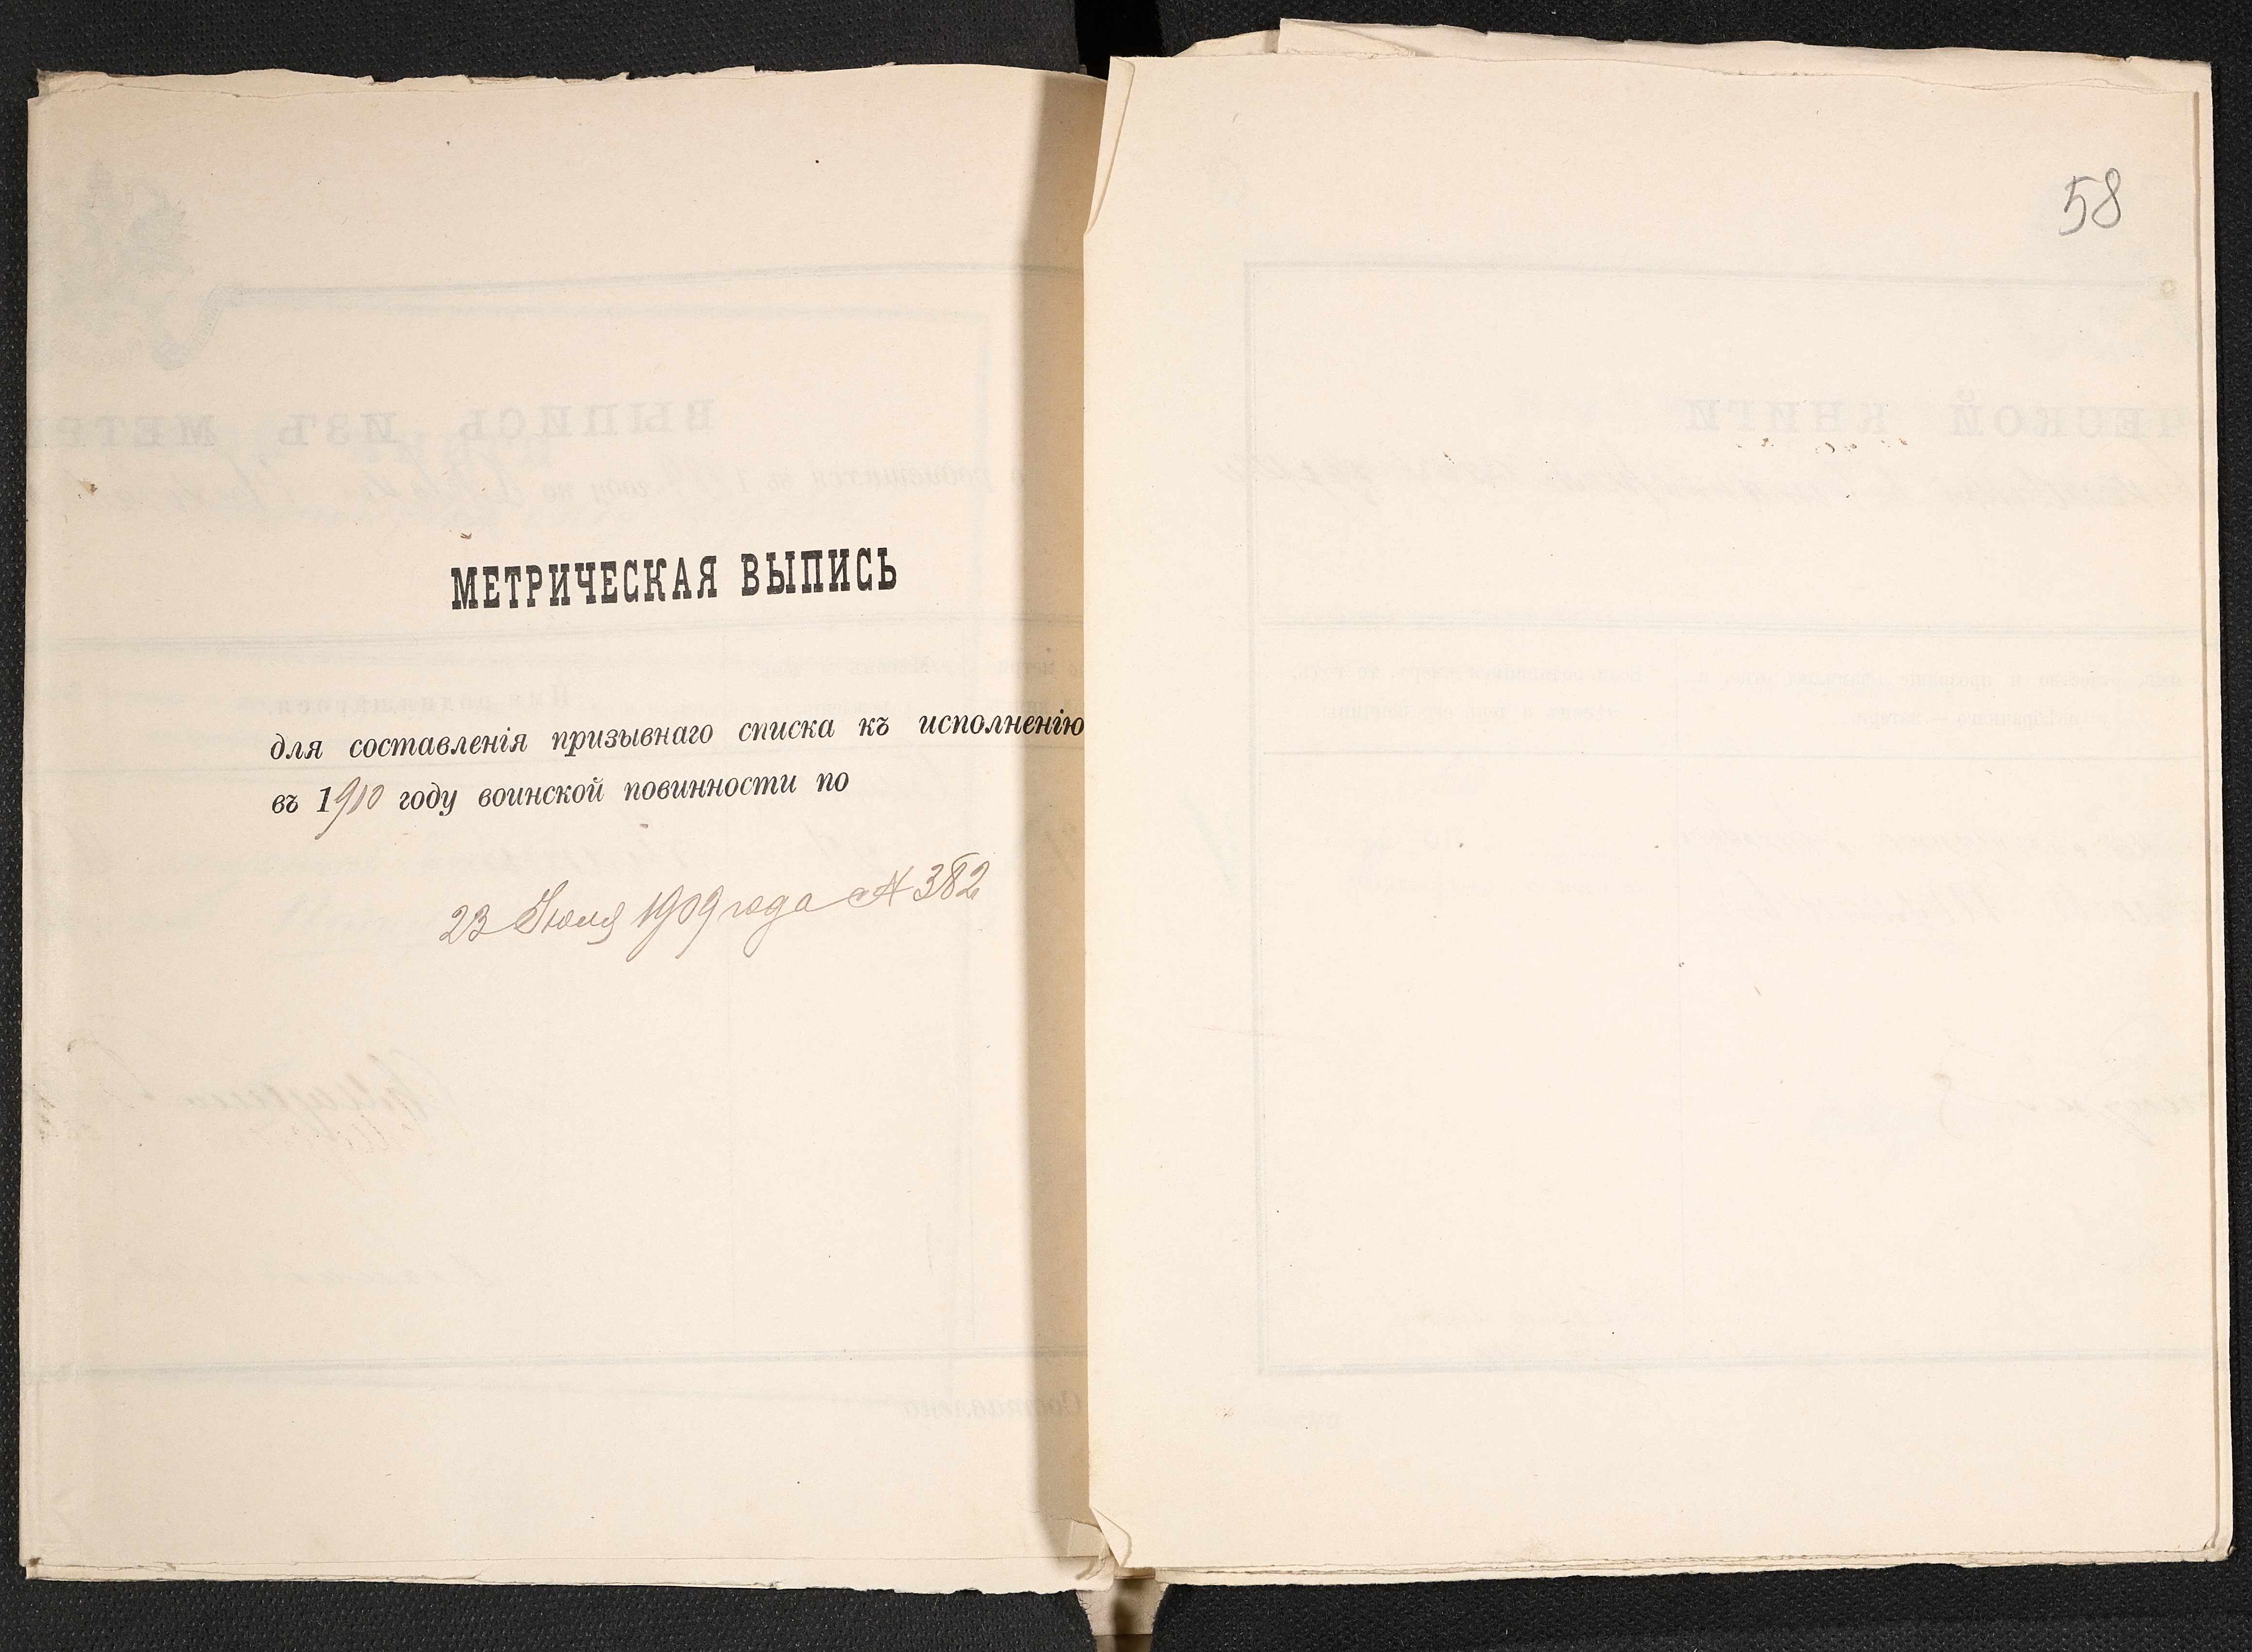 58
МЕТРИЧЕСКАЯ ВЫПИСЬ
для составленія призывнаго списка къ исполненію
въ 1910 году воинской повинности по
23 Июля 1909 года № 382